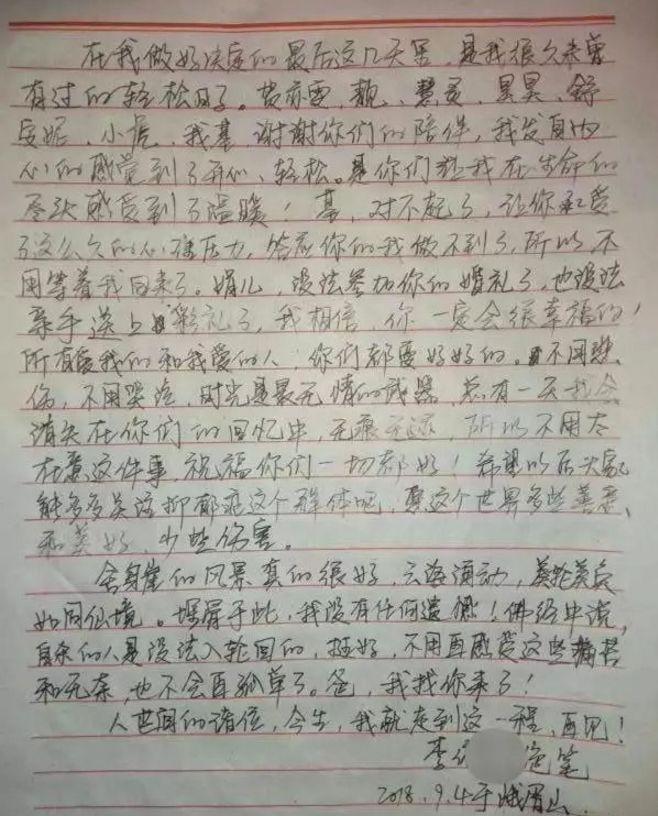 在我做好决定的最后这几天里,是我很久未曾
有过的轻松日子。黄亦雯、靓、慧灵、昊昊、舒
安妮、小虎、我基,谢谢你们的陪伴,我发自内
心的感觉到了开心、轻松。是你们让我在生命的
尽头感受到了温暖!基,对不起了,让你承受
了这么久的心理压力,答应你的我做不到了,所以不
用等着我回来了。娟儿,没法参加你的婚礼了,也没法
亲手送上彩礼了,我相信,你一定会很幸福的!
所有爱我的和我爱的人,你们都要好好的。不用悲
伤,不用哭泣,时光是最无情的武器,总有一天我会
消失在你们的回忆中,无痕无迹,所以不用太
在意这件事,祝福你们一切都好!希望以后大家
能多多关注抑郁症这个群体吧,愿这个世界多些善意、
和美好,少些伤害。
舍身崖的风景真的很好,云海涌动,美轮美奂
如同仙境。埋屑于此,我没有任何遗憾!佛经中说,
自杀的人是没法入轮回的,挺好,不用再感受这些痛苦
和无奈,也不会再孤单了。爸,我找你来了!
人世间的诸位,今生,我就走到这一程,再见!
李 笔
2018.9.4于峨眉山